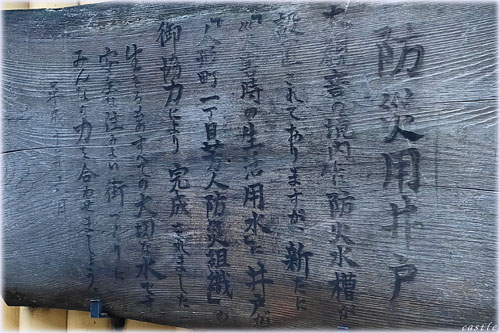 防災用井戸
大観音の境内に防火水槽が
設置されてありますが、新たに
災害時の生活用水 井戸が
『人形町一丁目婦人防災組織』の
御協力により完成されました
生きるものすべての大切な水です
安全な住みよい街づくりに
みんなの力を合わせましょう。
平成 月
castle